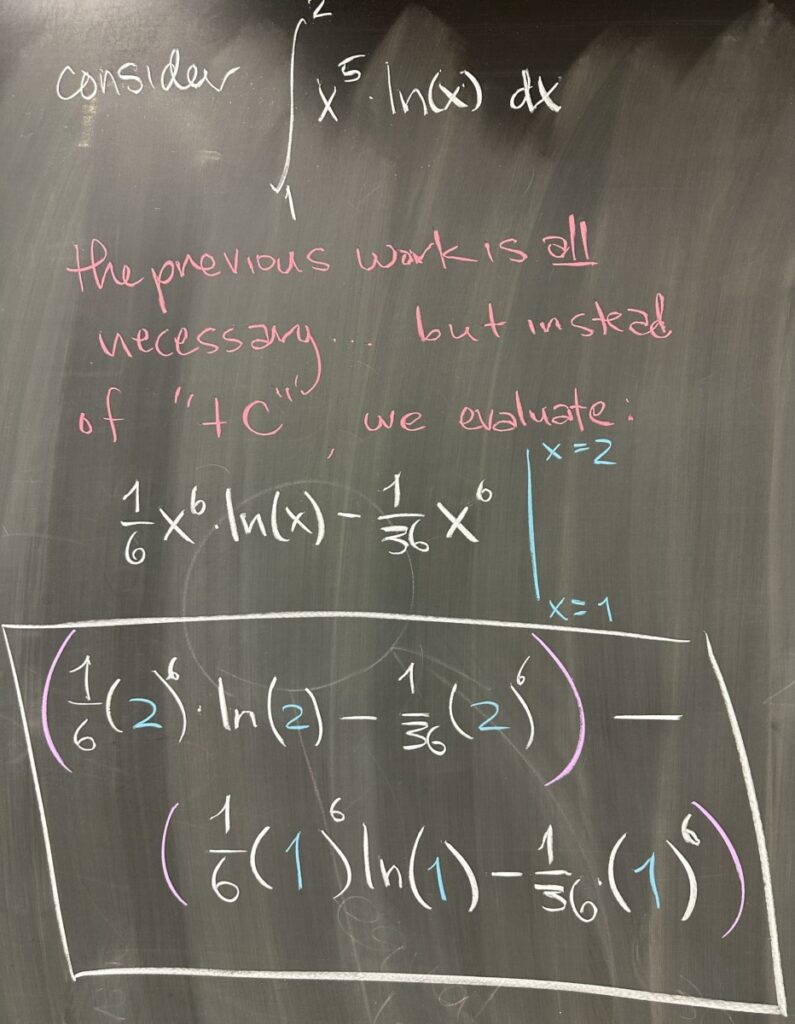 consider ∫₁² x⁵·ln(x) dx
the previous work is all
necessary... but instead
of "+C", we evaluate:
1/6 x⁶·ln(x) - 1/36 x⁶ | x=2 x=1
(1/6 (2)⁶·ln(2) - 1/36 (2)⁶) -
(1/6 (1)⁶ ln(1) - 1/36·(1)⁶)